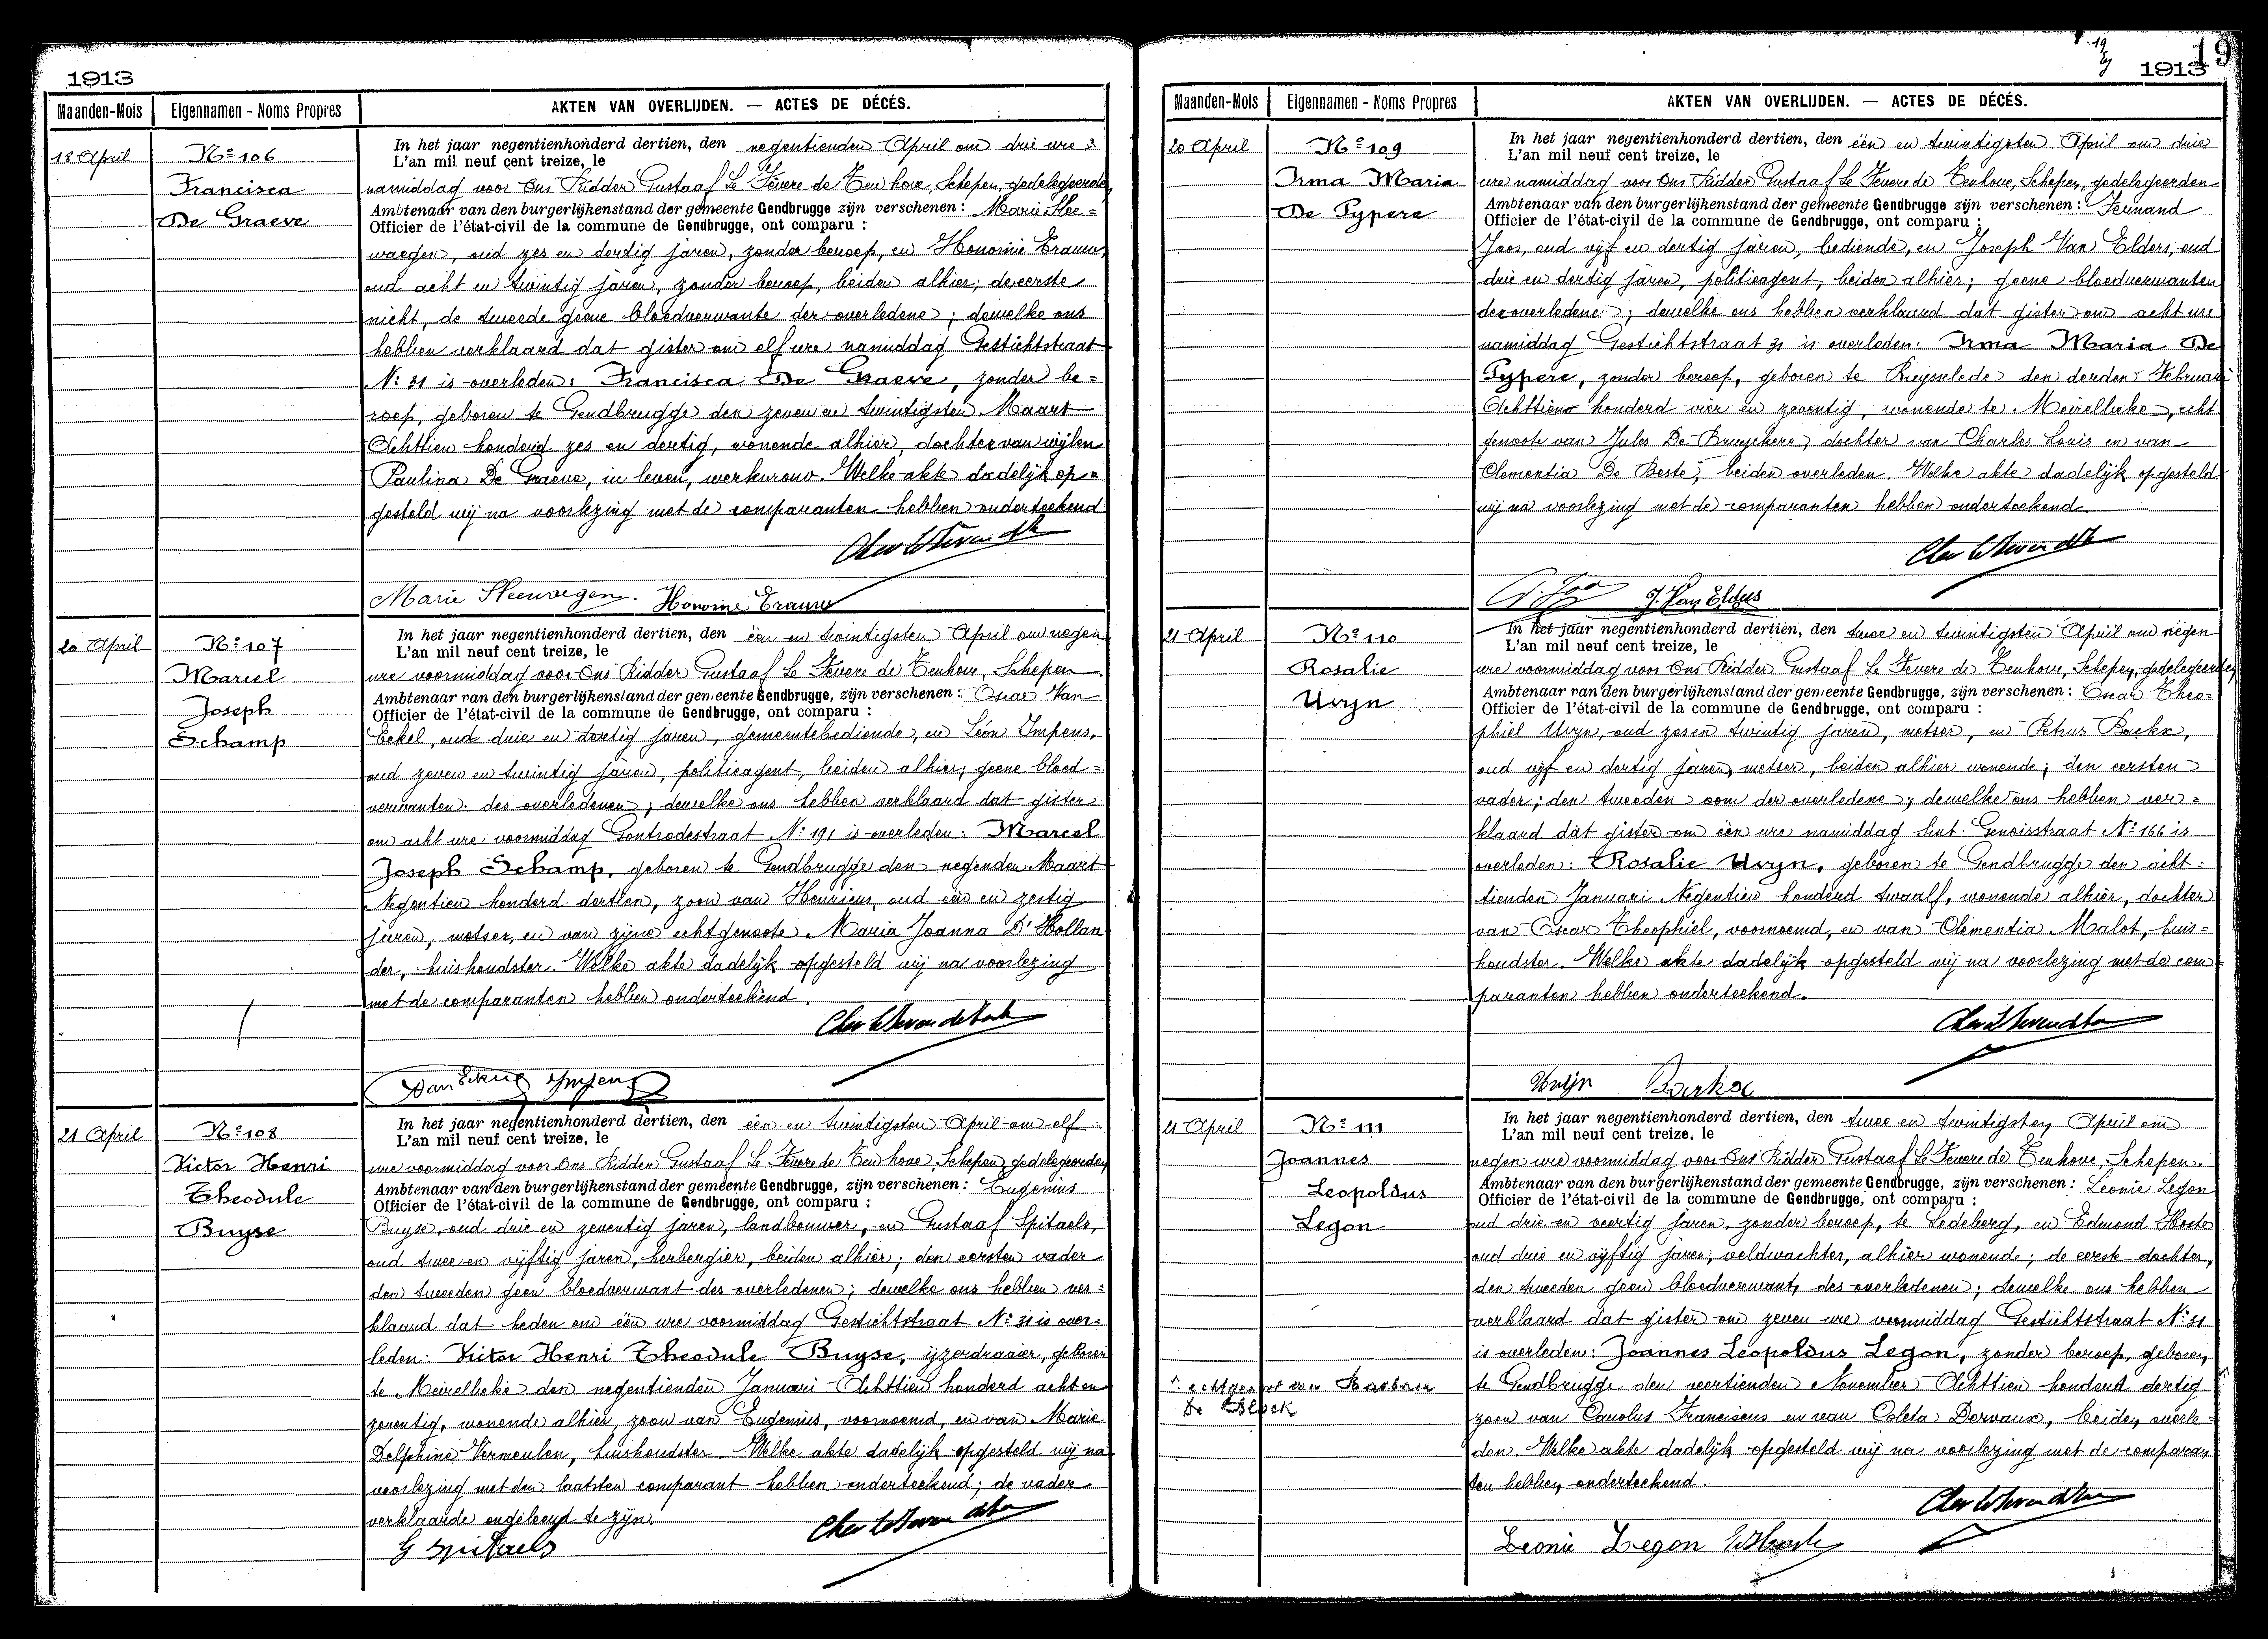 1913
Maanden-Mois Eigennamen - Noms Propres AKTEN VAN OVERLIJDEN. — ACTES DE DÉCÉS.
18 April
Nº 106
Francisca
De Graeve
In het jaar negentienhonderd dertien, den negentienden April om drie ure
L'an mil neuf cent treize, le
namiddag voor Ons Ridder Gustaaf Le Fevere de Tenhove, Schepen, gedelegeerde
Ambtenaar van den burgerlijkenstand der gemeente Gendbrugge zijn verschenen: Marie Slee=
Officier de l'état-civil de la commune de Gendbrugge, ont comparu :
waegen, oud zes en dertig jaren, zonder beroep, en Honorine Trauw,
oud acht en twintig jaren, zonder beroep, beiden alhier; de eerste
nicht, de tweede geene bloedverwante der overledene; dewelke ons
hebben verklaard dat gister om elf ure namiddag Gestichtstraat
Nº 31 is overleden: Francisca De Graeve, zonder be=
roep, geboren te Gendbrugge den zeven en twintigsten Maart
Achttien honderd zes en dertig, wonende alhier, dochter van wijlen
Paulina De Graeve, in leven, werkvrouw. Welke akte dadelijk op=
gesteld wij na voorlezing met de comparanten hebben onderteekend
Marie Sleewagen. Honorine Trauw
20 April
Nº 107
Marcel
Joseph
Schamp
In het jaar negentienhonderd dertien, den één en twintigsten April om negen
L'an mil neuf cent treize, le
ure voormiddag voor Ons Ridder Gustaaf Le Fevere de Tenhove, Schepen
Ambtenaar van den burgerlijkenstand der gemeente Gendbrugge, zijn verschenen: Oscar Van
Officier de l'état-civil de la commune de Gendbrugge, ont comparu :
Eekel, oud drie en dertig jaren, gemeentebediende, en Léon Impens,
oud zeven en twintig jaren, politieagent, beiden alhier; geene bloed=
verwanten des overledenen; dewelke ons hebben verklaard dat gister
om acht ure voormiddag Gontrodestraat Nº 191 is overleden: Marcel
Joseph Schamp, geboren te Gendbrugge den negenden Maart
Negentien honderd dertien, zoon van Henricus, oud één en zestig
jaren, metser, en van zijne echtgenoote Maria Joanna D'Hollan
der, huishoudster. Welke akte dadelijk opgesteld wij na voorlezing
met de comparanten hebben onderteekend.
21 April
Nº 108
Victor Henri
Theodule
Buyse
In het jaar negentienhonderd dertien, den één en twintigsten April om elf
L'an mil neuf cent treize, le
ure voormiddag voor Ons Ridder Gustaaf Le Fevere de Tenhove, Schepen, gedelegeerden
Ambtenaar van den burgerlijkenstand der gemeente Gendbrugge, zijn verschenen: Eugenius
Officier de l'état-civil de la commune de Gendbrugge, ont comparu :
Buyse, oud drie en zeventig jaren, landbouwer, en Gustaaf Spitaels,
oud twee en vijftig jaren, herbergier, beiden alhier; den eersten vader
den tweeden geen bloedverwant des overledenen; dewelke ons hebben ver=
klaard dat heden om één ure voormiddag Gestichtstraat Nº 31 is over=
leden: Victor Henri Theodule Buyse, ijzerdraaier, geboren
te Meirelbeke den negentienden Januari Achttien honderd acht en
zeventig, wonende alhier, zoon van Eugenius, voornoemd, en van Marie
Delphine Vermeulen, huishoudster. Welke akte dadelijk opgesteld wij na
voorlezing met den laatsten comparant hebben onderteekend; de vader
verklaarde ongeleerd te zijn.
G Spitaels
19
1913
Maanden-Mois Eigennamen - Noms Propres AKTEN VAN OVERLIJDEN. — ACTES DE DÉCÉS.
20 April
Nº 109
Irma Maria
De Pypere
In het jaar negentienhonderd dertien, den één en twintigsten April om drie
L'an mil neuf cent treize, le
ure namiddag voor Ons Ridder Gustaaf Le Fevere de Tenhove, Schepen, gedelegeerden
Ambtenaar van den burgerlijkenstand der gemeente Gendbrugge zijn verschenen: Fernand
Officier de l'état-civil de la commune de Gendbrugge, ont comparu :
Joos, oud vijf en dertig jaren, bediende, en Joseph Van Elders, oud
drie en dertig jaren, politieagent, beiden alhier; geene bloedverwanten
der overledene; dewelke ons hebben verklaard dat gister om acht ure
namiddag Gestichtstraat 31 is overleden: Irma Maria De
Pypere, zonder beroep, geboren te Ruysselede den derden Februari
Achttien honderd vier en zeventig, wonende te Meirelbeke, echt
genoote van Jules De Bruyckere, dochter van Charles Louis en van
Clementia De Beste, beiden overleden. Welke akte dadelijk opgesteld
wij na voorlezing met de comparanten hebben onderteekend
J. Van Elders
21 April
Nº 110
Rosalie
Uvyn
In het jaar negentienhonderd dertien, den twee en twintigsten April om negen
L'an mil neuf cent treize, le
ure voormiddag voor Ons Ridder Gustaaf Le Fevere de Tenhove, Schepen, gedelegeerden
Ambtenaar van den burgerlijkenstand der gemeente Gendbrugge, zijn verschenen: Oscar Theo=
Officier de l'état-civil de la commune de Gendbrugge, ont comparu :
phiel Uvyn, oud zes en twintig jaren, metser, en Petrus
oud vijf en dertig jaren, metser, beiden alhier wonende; den eersten
vader; den tweeden oom der overledene; dewelke ons hebben ver=
klaard dat gister om één ure namiddag Sint. Genoisstraat Nº 166 is
overleden: Rosalie Uvyn, geboren te Gendbrugge den acht=
tienden Januari Negentien honderd twaalf, wonende alhier, dochter
van Oscar Theophiel, voornoemd, en van Clementia Malot, huis=
houdster. Welke akte dadelijk opgesteld wij na voorlezing met de com
paranten hebben onderteekend.
Uvijn
21 April
Nº 111
Joannes
Leopoldus
Legon
In het jaar negentienhonderd dertien, den twee en twintigsten April om
L'an mil neuf cent treize, le
negen ure voormiddag voor Ons Ridder Gustaaf Le Fevere de Tenhove, Schepen.
Ambtenaar van den burgerlijkenstand der gemeente Gendbrugge, zijn verschenen: Leonie Legon
Officier de l'état-civil de la commune de Gendbrugge, ont comparu :
oud drie en veertig jaren, zonder beroep, te Ledeberg, en Edmond Hoste
oud drie en vijftig jaren, veldwachter, alhier wonende; de eerste dochter,
den tweeden geen bloedverwant, des overledenen; dewelke ons hebben
verklaard dat gister om zeven ure voormiddag Gestichtstraat Nº 31
is overleden: Joannes Leopoldus Legon, zonder beroep, geboren
te Gendbrugge den veertienden November Achttien honderd dertig
zoon van Carolus Franciscus en van Coleta Dervaux, beiden overle=
den. Welke akte dadelijk opgesteld wij na voorlezing met de comparan
ten hebben onderteekend.
echtgenoot van Barbara
De Block
Leonie Legon